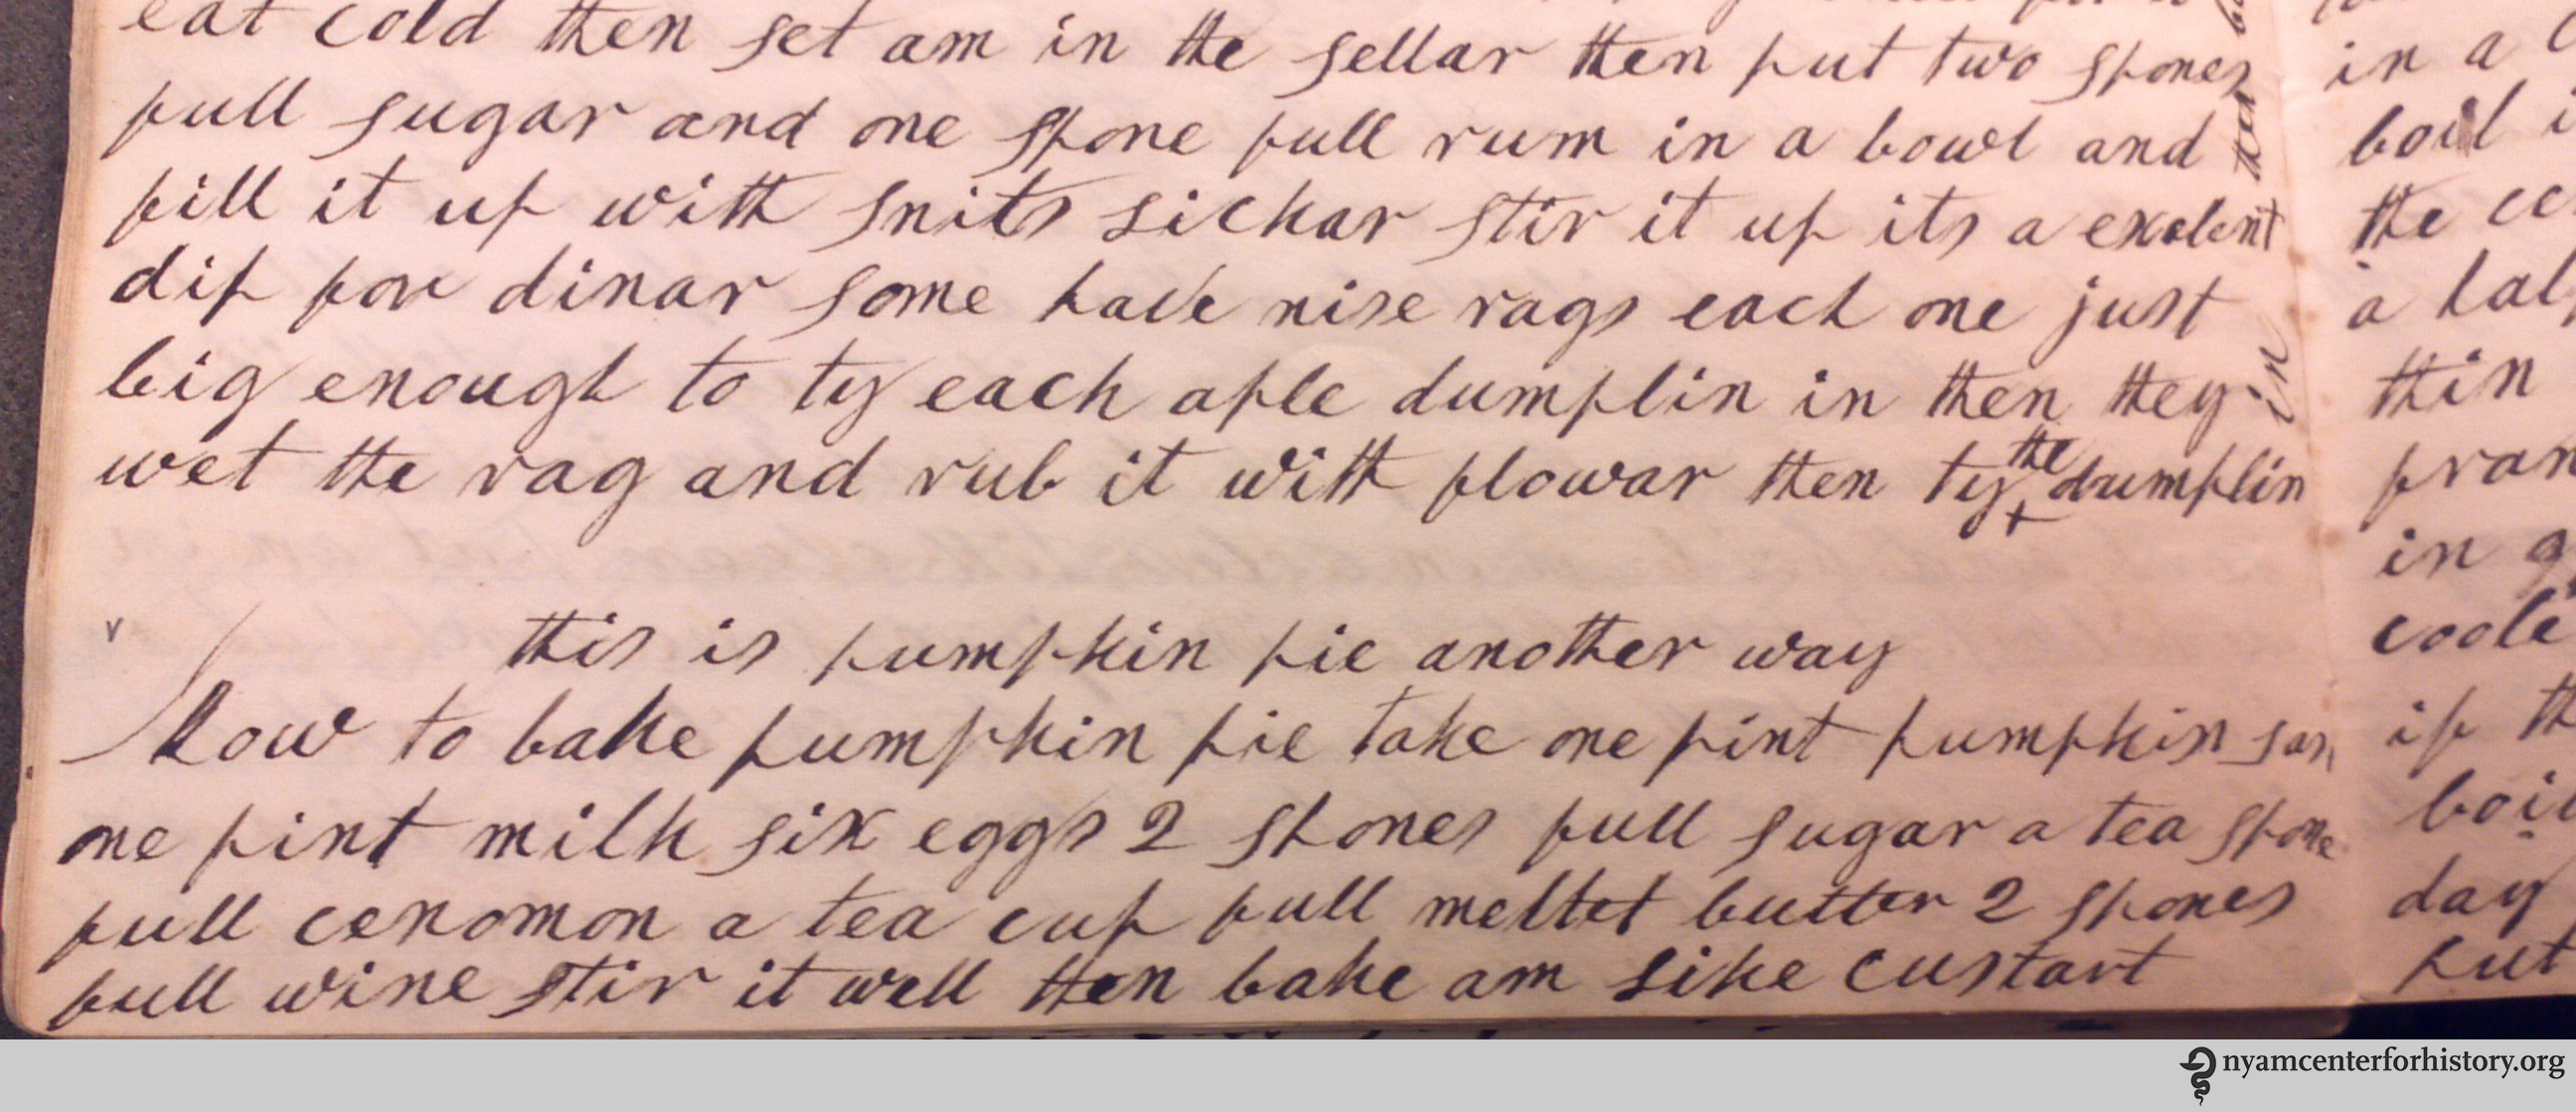 eat cold then set am in the sellar then put two spones
full sugar and one spone full rum in a bowl and
fill it up with snits sickar stir it up its a exelent
dip for dinar some have nise rags each one just
big enough to ty each aple dumplin in then they
wet the rag and rub it with flowar then ty the dumplin
in
this is pumpkin pie another way
how to bake pumpkin pie take one pint pumpkin
one pint milk six eggs 2 spones full sugar a tea spone
full cenomon a tea cup full meltet butter 2 spones
full wine stir it well then bake am sike custart
in a
boil
the
a
thin
in
if
day
put
nyamcenterforhistory.org